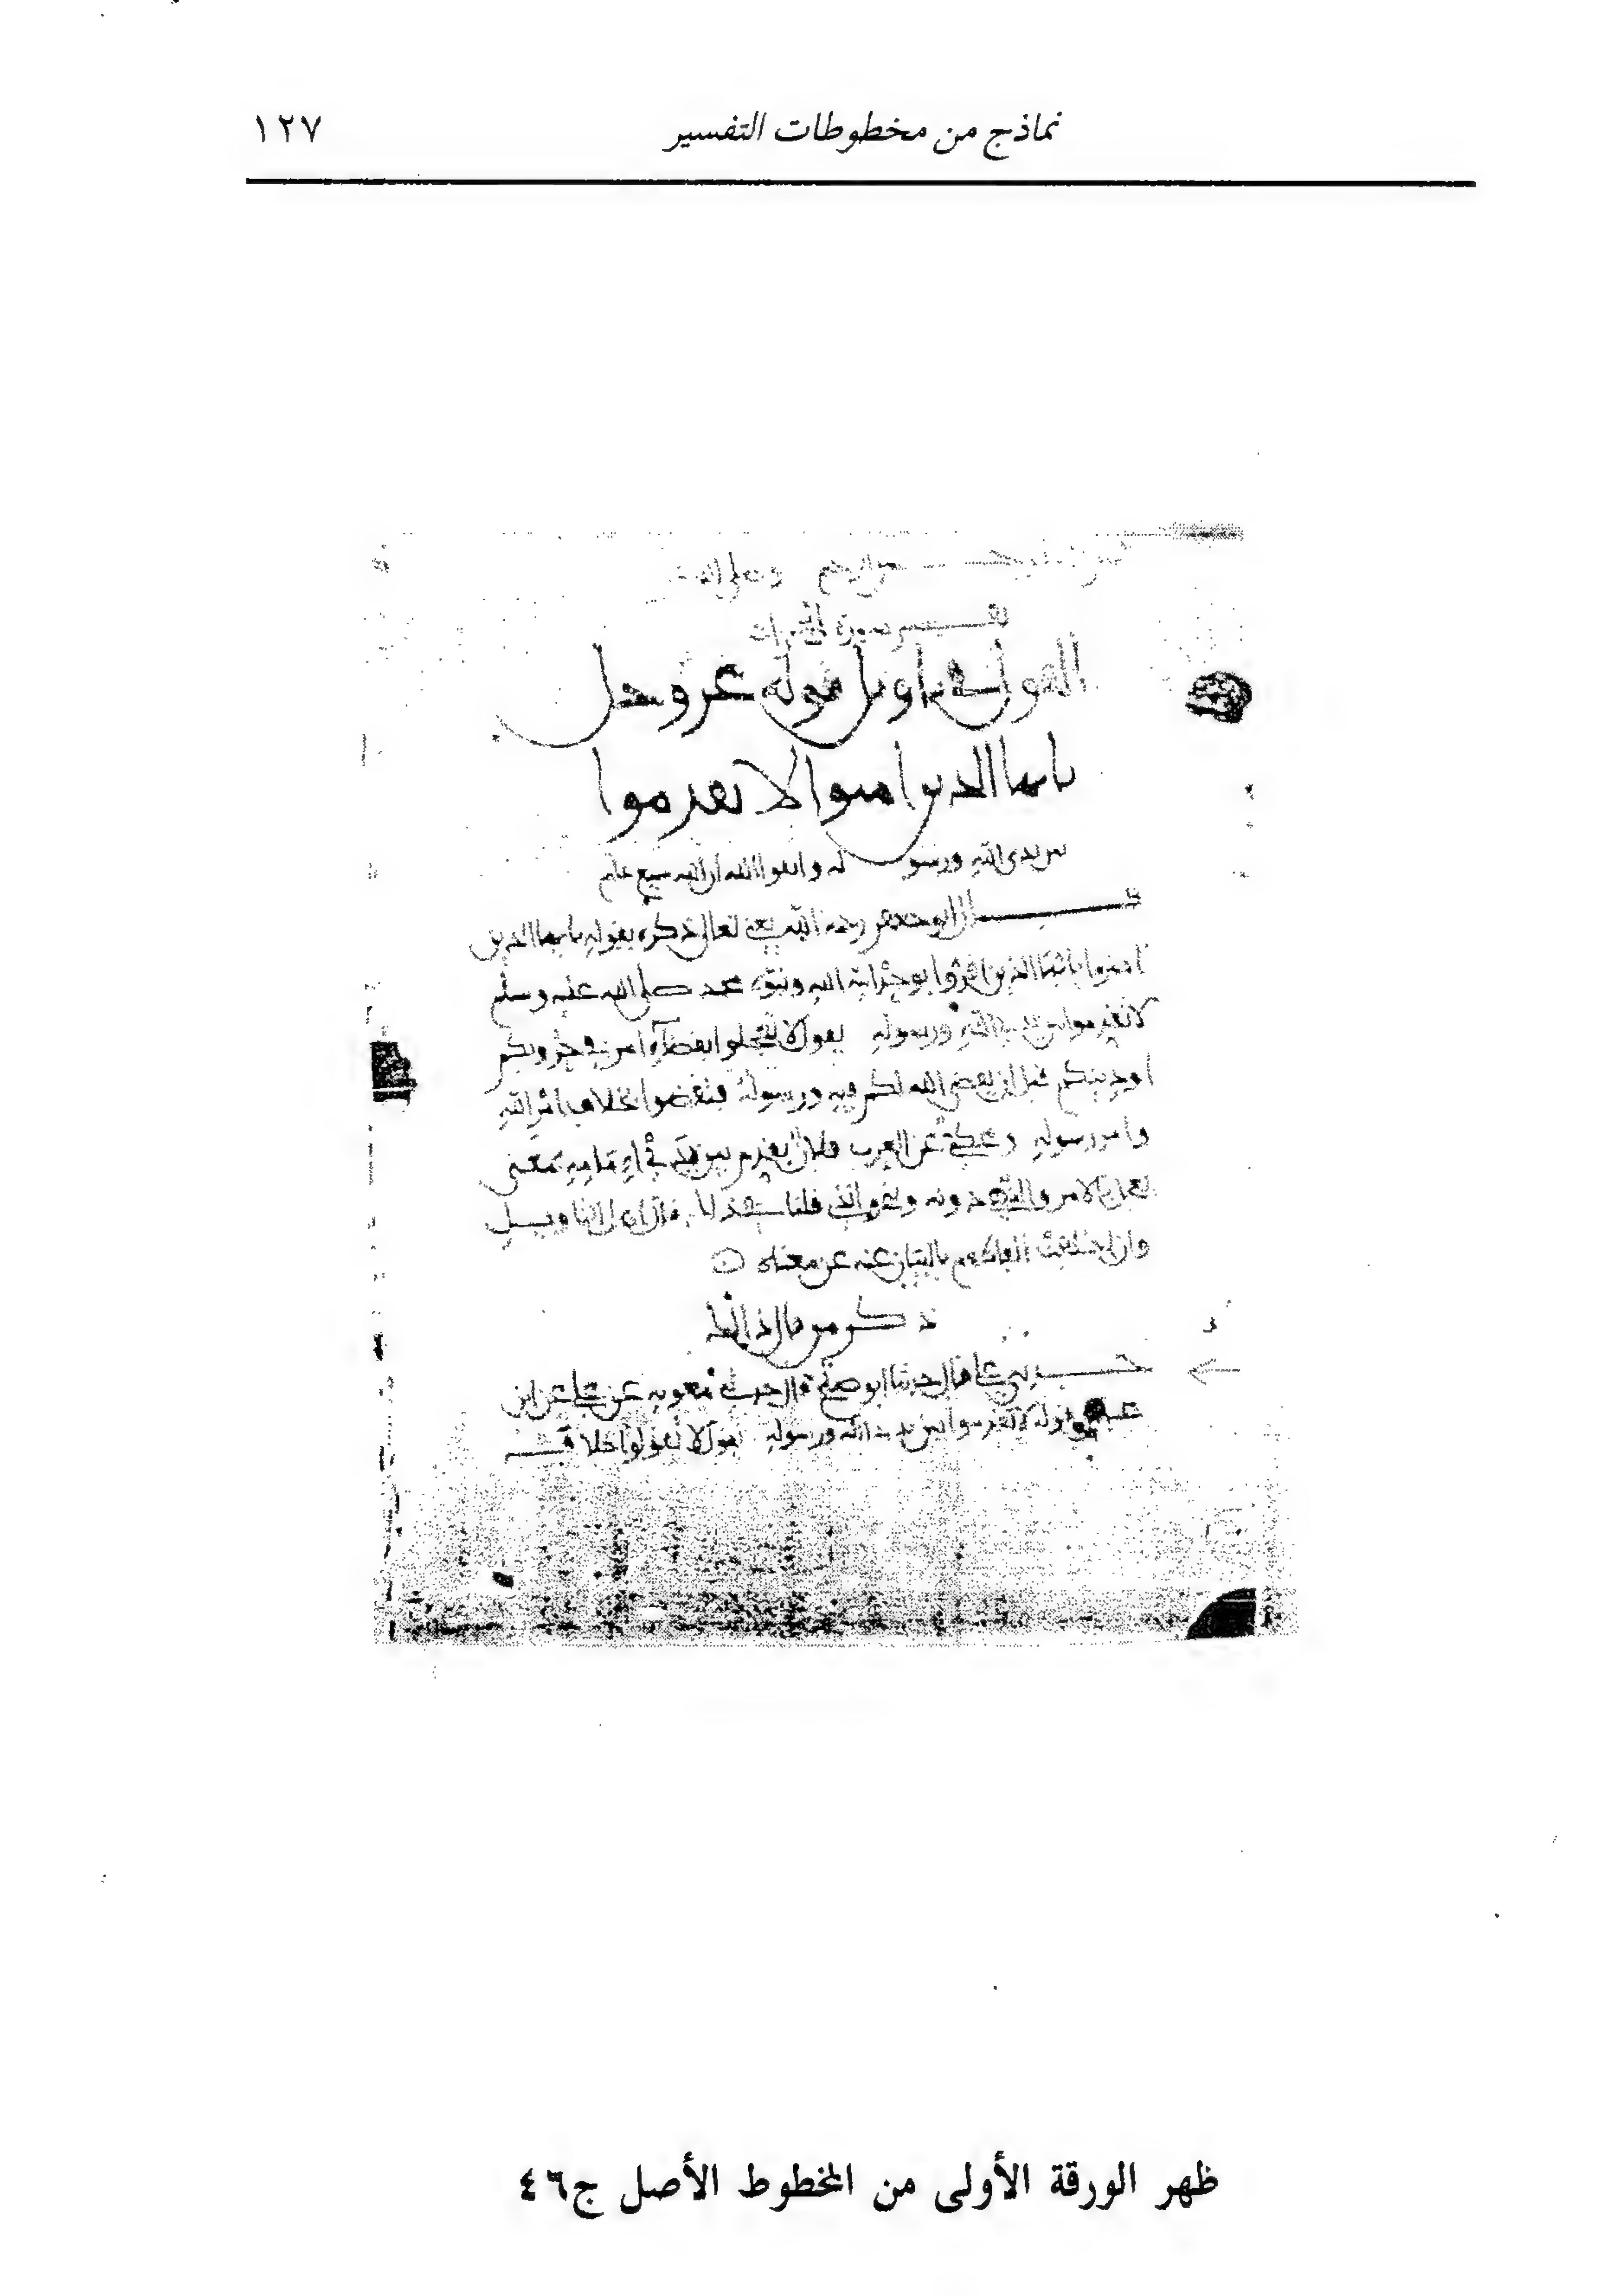 نماذج من مخطوطات التفسير ١٢٧
الرحيم وصلى الله
تفسير سورة الحجرات
القول في تاويل قوله عز وجل
يايها الذين امنوا لا تقدموا
بين يدي الله ورسوله واتقوا الله ان الله سميع عليم
قال ابو جعفر رحمه الله يعني تعالى ذكره بقوله يايها الذين
امنوا يا ايها الذين اقروا بوحدانية الله ونبوة محمد صلى الله عليه وسلم
لا تقدموا بين يدي الله ورسوله يقول لا تعجلوا بقضاء امر في حروبكم
او دينكم قبل ان يقضي الله لكم فيه ورسوله فتقضوا بخلاف امر الله
وامر رسوله محكي عن العرب فلان يقدم بين يدي امامه بمعنى
يعجل بالامر والنهي دونه وبنحو الذي قلنا في ذلك قال اهل التاويل
وان اختلفت الفاظهم بالبيان عنه عن معناه
ذكر من قال ذلك
حدثني علي قال حدثنا ابو صالح قال حدثني معوية عن علي عن ابن
عباس قوله لا تقدموا بين يدي الله ورسوله يقول لا تقولوا خلاف
ظهر الورقة الأولى من المخطوط الأصل ج٤٦